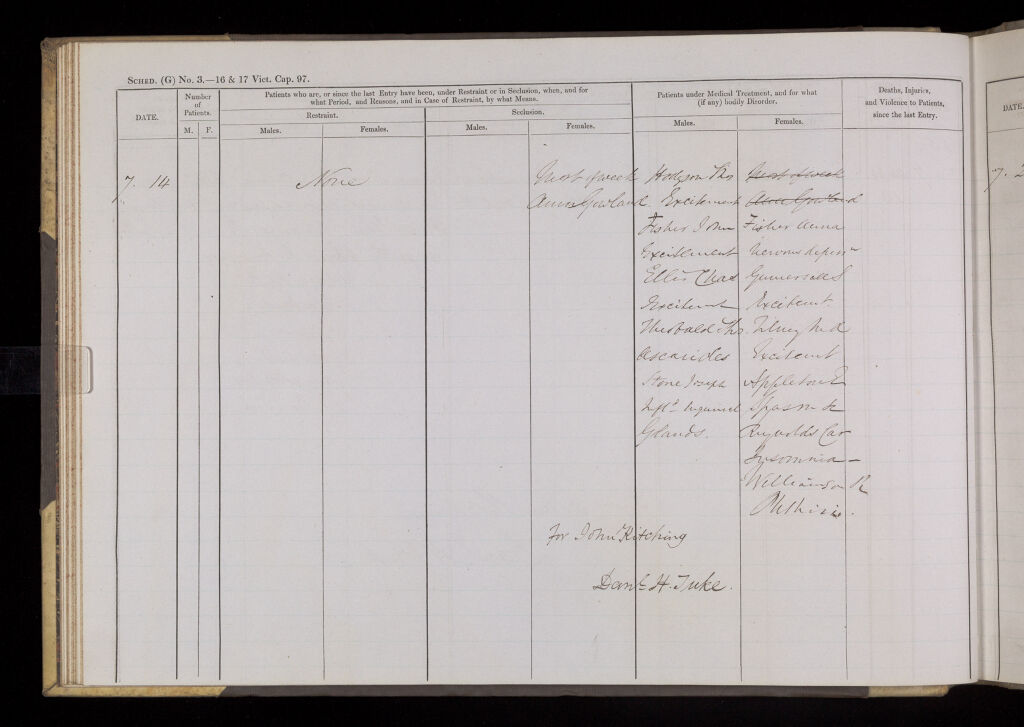 SCHED. (G) No. 3.—16 & 17 Vict. Cap. 97.
DATE.
Number of Patients.
M. F.
Patients who are, or since the last Entry have been, under Restraint or in Seclusion, when, and for
what Period, and Reasons, and in Case of Restraint, by what Means.
Restraint.
Males. Females.
Seclusion.
Males. Females.
Patients under Medical Treatment, and for what
(if any) bodily Disorder.
Males. Females.
Deaths, Injuries,
and Violence to Patients,
since the last Entry.
7. 14
None
Most of week
Anna Gowland.
Hodgson Thos
Excitement
Fisher John
Excitement
Ellis Chas
Excitement
Theobald Thos.
Ascarides
Stone Joseph
Inguinal
Glands.
Most of week
Gowland
Fisher Anna
Nervous
Excitemt.
Excitemt
Appleton E
Spasm &c
Reynolds Car
Insomnia –
Williamson R
Phthisis.
for John Kitching
Danl H. Tuke.
DATE.
7.